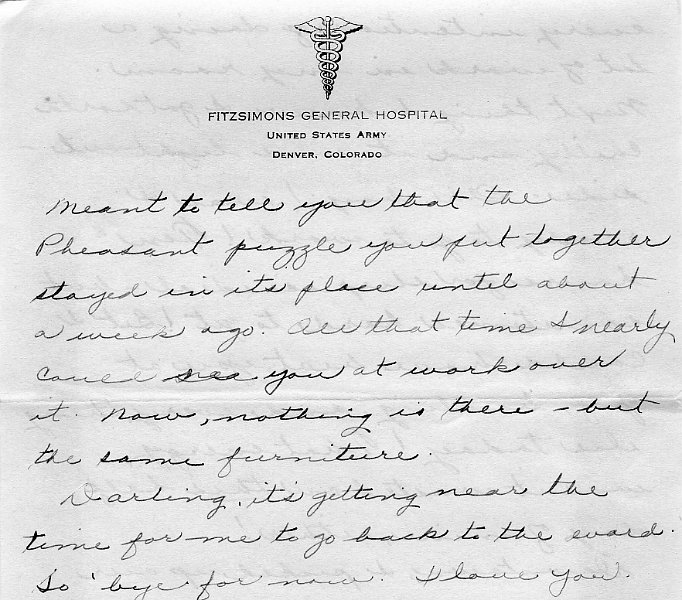 FITZSIMONS GENERAL HOSPITAL
UNITED STATES ARMY
DENVER, COLORADO
Meant to tell you that the
Pheasant puzzle you put together
stayed in its place until about
a week ago. All that time I nearly
could see you at work over
it. Now, nothing is there - but
the same furniture.
Darling, it's getting near the
time for me to go back to the ward.
So 'bye for now. I love you.